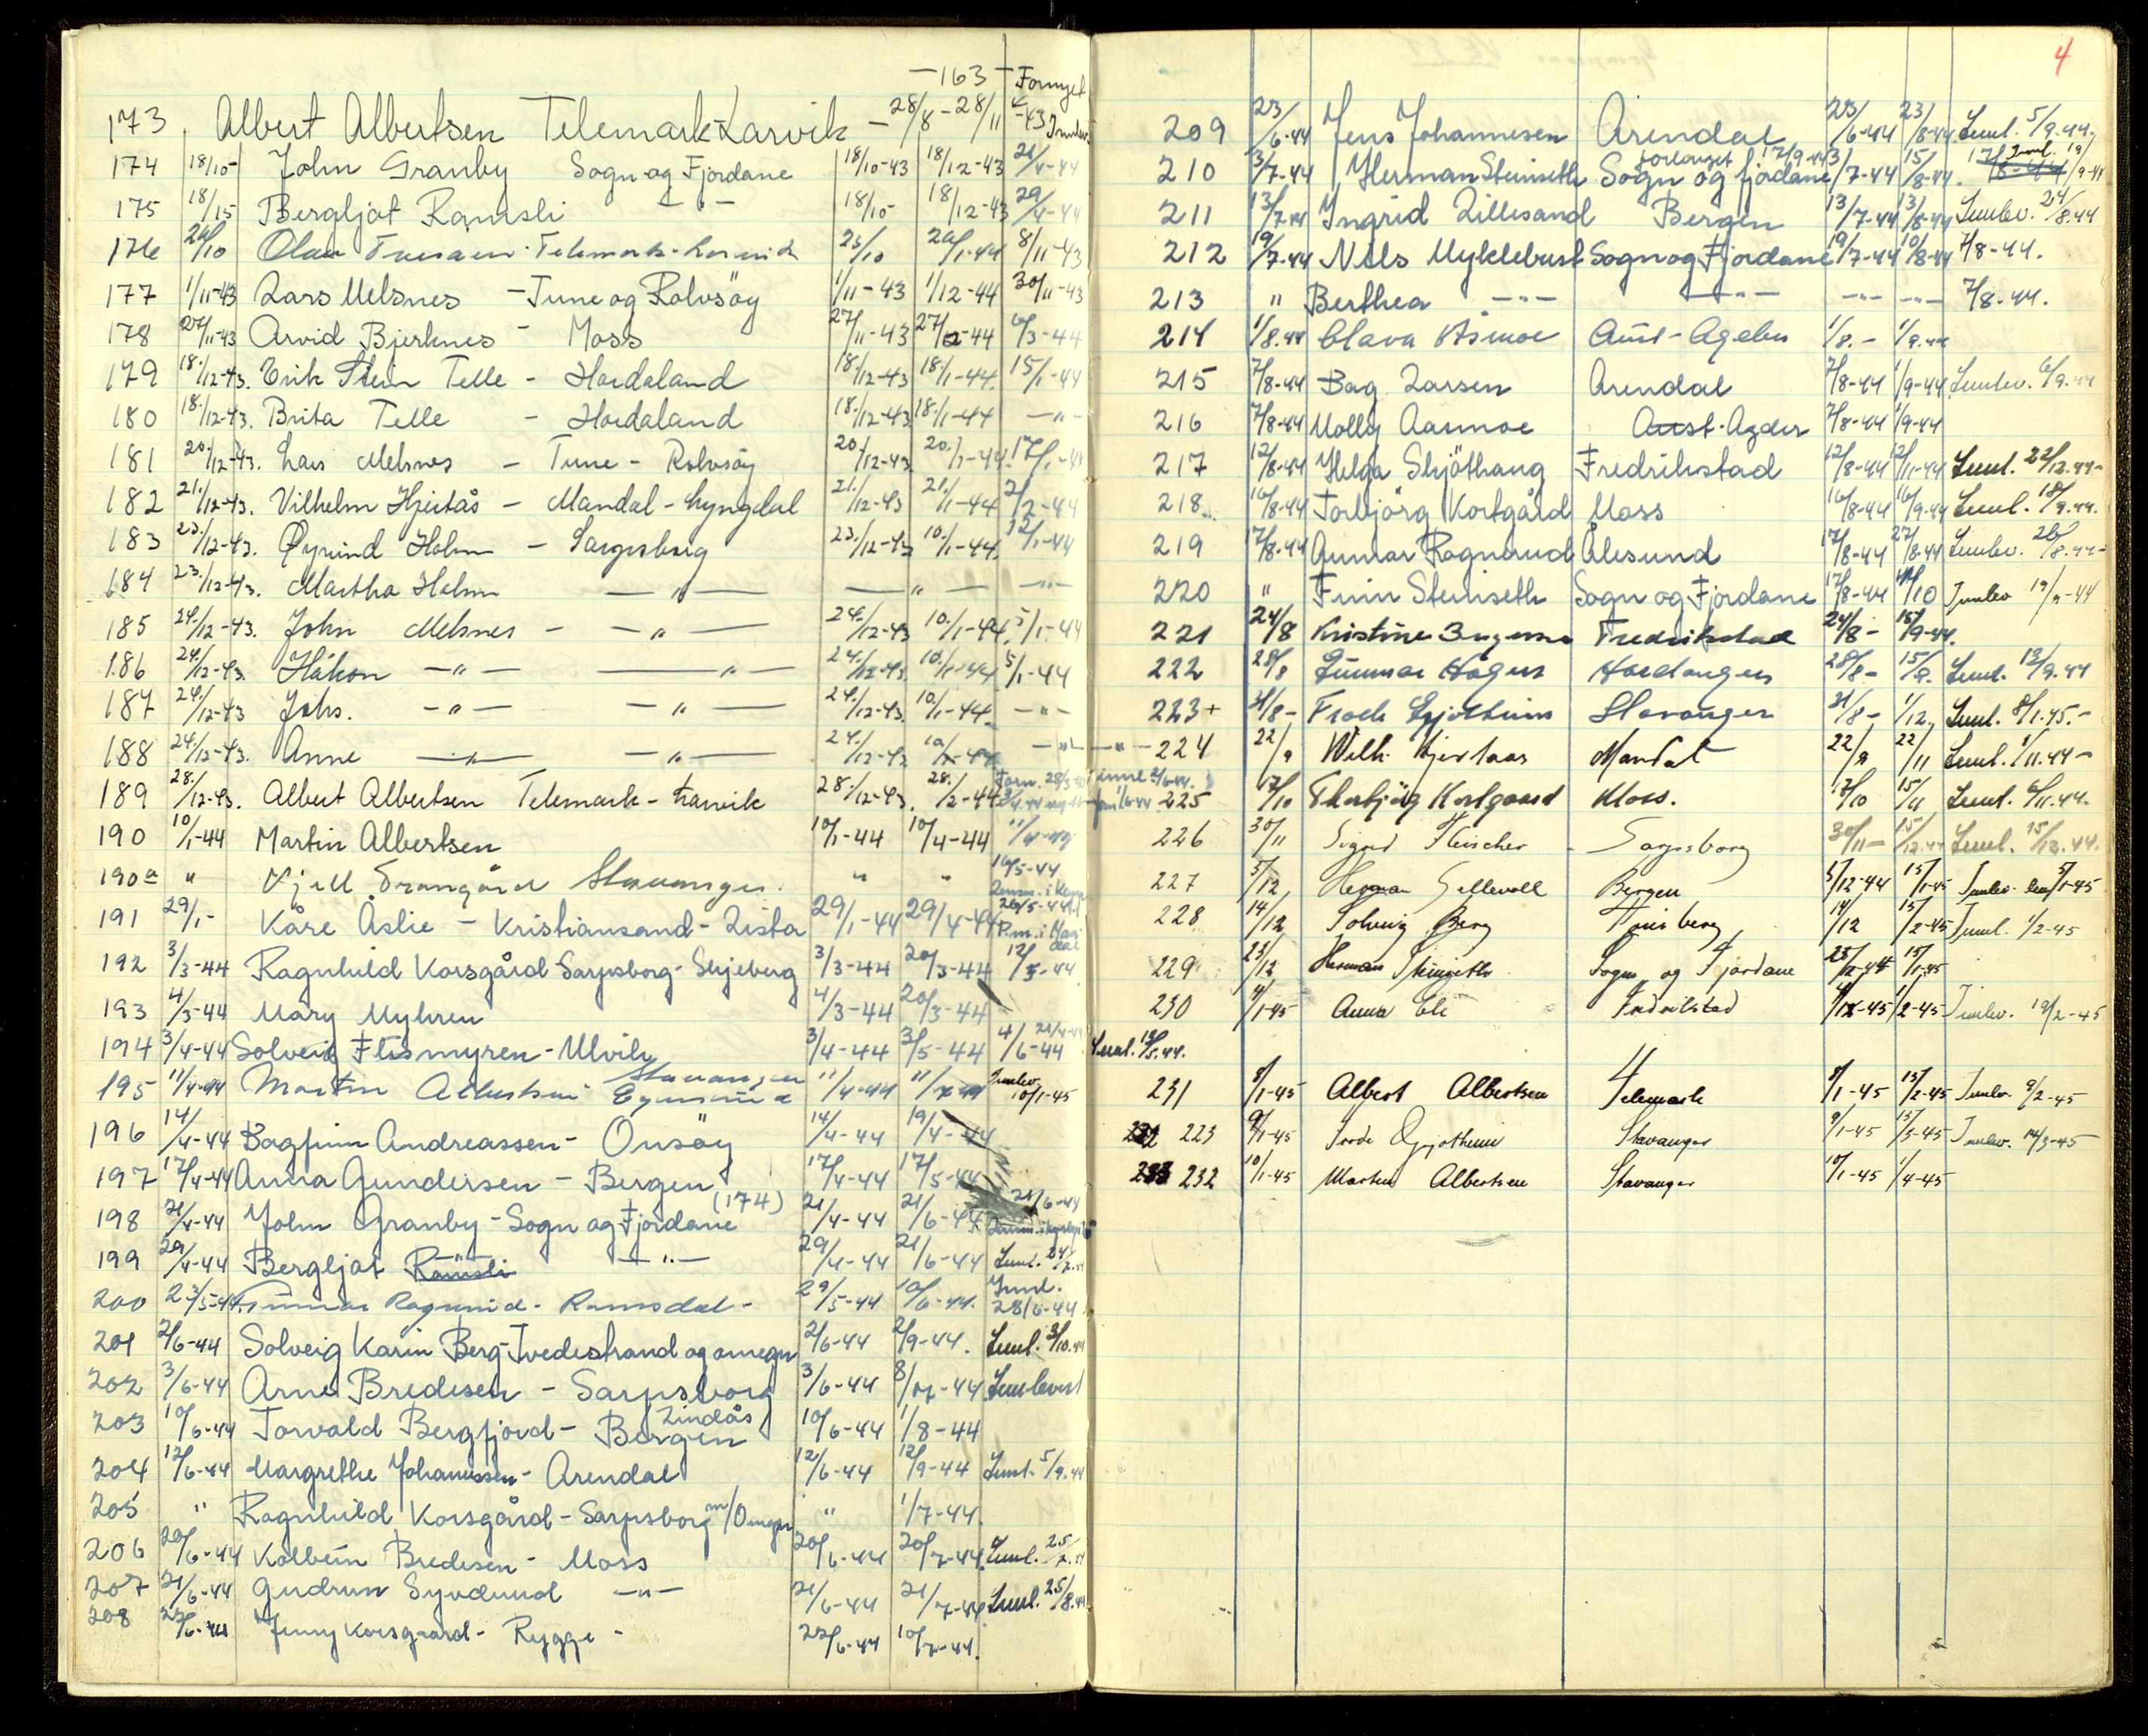 -163- Fornyet
173 Albert Albertsen Telemark-Larvik - 28/8 - 28/11 -43
174 18/10- John Granby Sogn og Fjordane 18/10-43 18/12-43 21/4-44
175 18/10 Bergljot Ramsli - " - 18/10- 18/12-43 29/4-44
176 Olav Telemark-Larvik 8/11-43
177 1/11-43 Lars Melsnes - Tune og Rolvsöy 1/11-43 1/12-44 30/11-43
178 27/11-43 Arvid Bjerknes - Moss 27/11-43 27/2-44 6/3-44
179 18./12-43. Erik Stein Telle - Hordaland 18./12-43 18./1-44. 15/1-44
180 18./12-43. Brita Telle - Hordaland 18./12-43 18./1-44 - " -
181 20./12-43. Lars Melsnes - Tune - Rolvsöy 20./12-43 20./1-44. 17/1-44
182 21./12-43. Vilhelm Hjertås - Mandal - Lyngdal 21./12-43 21./1-44 2/2-44
183 23./12-43. Øyvind Holm - Sarpsborg 23./12-43 10./1-44. 12/1-44
184 23./12-43. Martha Holm - " - - " - - " -
185 24./12-43. John Melsnes - - " - 24./12-43 10./1-44. 5/1-44
186 24./12-43. Håkon - " - - " - 24./12-43 10./1-44 5/1-44
187 24./12-43 Johs. - " - - " - 24./12-43. 10/1-44. - " -
188 24./12-43. Anne - " - - " - 24./12-43 10/1-44 - " -
189 28./12-43. Albert Albertsen Telemark - Larvik 28./12-43. 28./2-44
190 10/1-44 Martin Albertsen 10/1-44 10/4-44 11/4-44
190a " Kjell Stavanger. " " 16/5-44
191 29/1- Kåre Åslie - Kristiansand - Lista 29/1-44 29/4-44 26/5-44
192 3/3-44 Ragnhild Korsgård Sarpsborg - Skjeberg 3/3-44 20/3-44 12/5-44
193 4/3-44 Mary Myhren 4/3-44 20/3-44
194 3/4-44 Solveig Flismyren - Ulvik 3/4-44 3/5-44 4/6-44
195 11/4-44 Martin Albertsen Stavanger Egersund 11/4-44 Innlev. 10/1-45
196 14/4-44 Dagfinn Andreassen - Onsöy 14/4-44 19/4-44
197 17/4-44 Anna Gundersen - Bergen 17/4-44 17/5-44
198 21/4-44 John Granby - Sogn og Fjordane (174) 21/4-44 21/6-44 21/6-44
199 29/4-44 Bergljot Ramsli - " - 29/4-44 21/6-44
200 23/5-44 Gunnar Ragnerud - Romsdal - 10/6-44. Innl. 28/6-44
201 2/6-44 Solveig Karin Berg - Tvedestrand og omegn 2/6-44 2/9-44. Innl. 3/10.44
202 3/6-44 Arne Bredesen - Sarpsborg 3/6-44 Innlevert
203 10/6-44 Torvald Bergfjord - Bergen Lindås 10/6-44 1/8-44
204 12/6-44 Margrethe Johannessen - Arendal 12/6-44 12/9-44 Innl. 5/9.44
205 " Ragnhild Korsgård - Sarpsborg m/Omegn " 1/7-44.
206 20/6-44 Kolbein Bredesen - Moss 20/6-44 20/7-44. Innl. 25/7.44
207 21/6-44 Gudrun Syvdrud - " - 21/6-44 21/7-44 Innl. 25/8.44
208 Jenny Korsgaard - Rygge - 10/7-44.
4
209 23/6-44 Jens Johannesen Arendal 23/6-44 23/8-44 Innl. 5/9.44.
210 3/7-44 Herman Steinseth Sogn og fjordane forlenget 17/9-44 3/7-44 15/8-44. Innl. 19/9-44
211 13/7-44 Ingrid Lillesand Bergen 13/7-44 13/8-44 Innlev. 24/8.44
212 19/7-44 Nils Myklebust Sogn og Fjordane 19/7-44 10/8-44 7/8-44.
213 " Berthea - " - - " - - " - - " - 7/8-44.
214 1/8.44 Olava Åsmoe Aust-Agder 1/8.- 1/9.44
215 7/8-44 Dag Larsen Arendal 7/8-44 1/9-44 Innlev. 6/9.44
216 7/8-44 Molly Aasmoe Aust-Agder 7/8-44 1/9-44
217 12/8-44 Helga Skjöthaug Fredrikstad 12/8-44 12/11-44 Innl. 22/12.44-
218 16/8-44 Torbjörg Kortgård Moss 16/8-44 16/9-44 Innl. 18/9.44.
219 17/8.44 Gunnar Ragnerud Ålesund 17/8-44 27/8-44 Innlev. 26/8.44-
220 " Finn Steinseth Sogn og Fjordane 17/8-44 Innlev 19/9-44
221 24/8 Kristine Fredrikstad 24/8- 15/9-44.
222 28/8 Gunnar Hagen Hardanger 28/8- 15/9. Innl. 13/9.44
223+ 31/8- Frode Gjøtheim Stavanger 31/8- 1/12. Innl. 8/1.45.-
224 22/9 Wilh. Hjertaas Mandal 22/9 22/11 Innl. 1/11.44-
225 17/10 Thorbjörg Kortgaard Moss. 17/10 15/11 Innl. 6/11.44.
226 30/11 Sigrid Fleischer - Sarpsborg 30/11- 15/12.44 Innl. 15/12.44.
227 5/12, Herman Sellevoll Bergen 5/12-44 15/1-45 Innlev. 5/1-45
228 14/12 Solveig Berg Tønsberg 14/12 15/2-45 Innl. 1/2-45
229 23/12 Herman Steinseth Sogn og Fjordane 15/1-45
230 4/1-45 Anna Eli Fredrikstad 1/2-45 Innlev. 19/2-45
231 8/1-45 Albert Albertsen Telemark 8/1-45 15/2-45 Innlev. 9/2-45
223 9/1-45 Frode Gjøtheim Stavanger 9/1-45 15/3-45 Innlev. 14/3-45
232 10/1-45 Martin Albertsen Stavanger 10/1-45 1/4-45